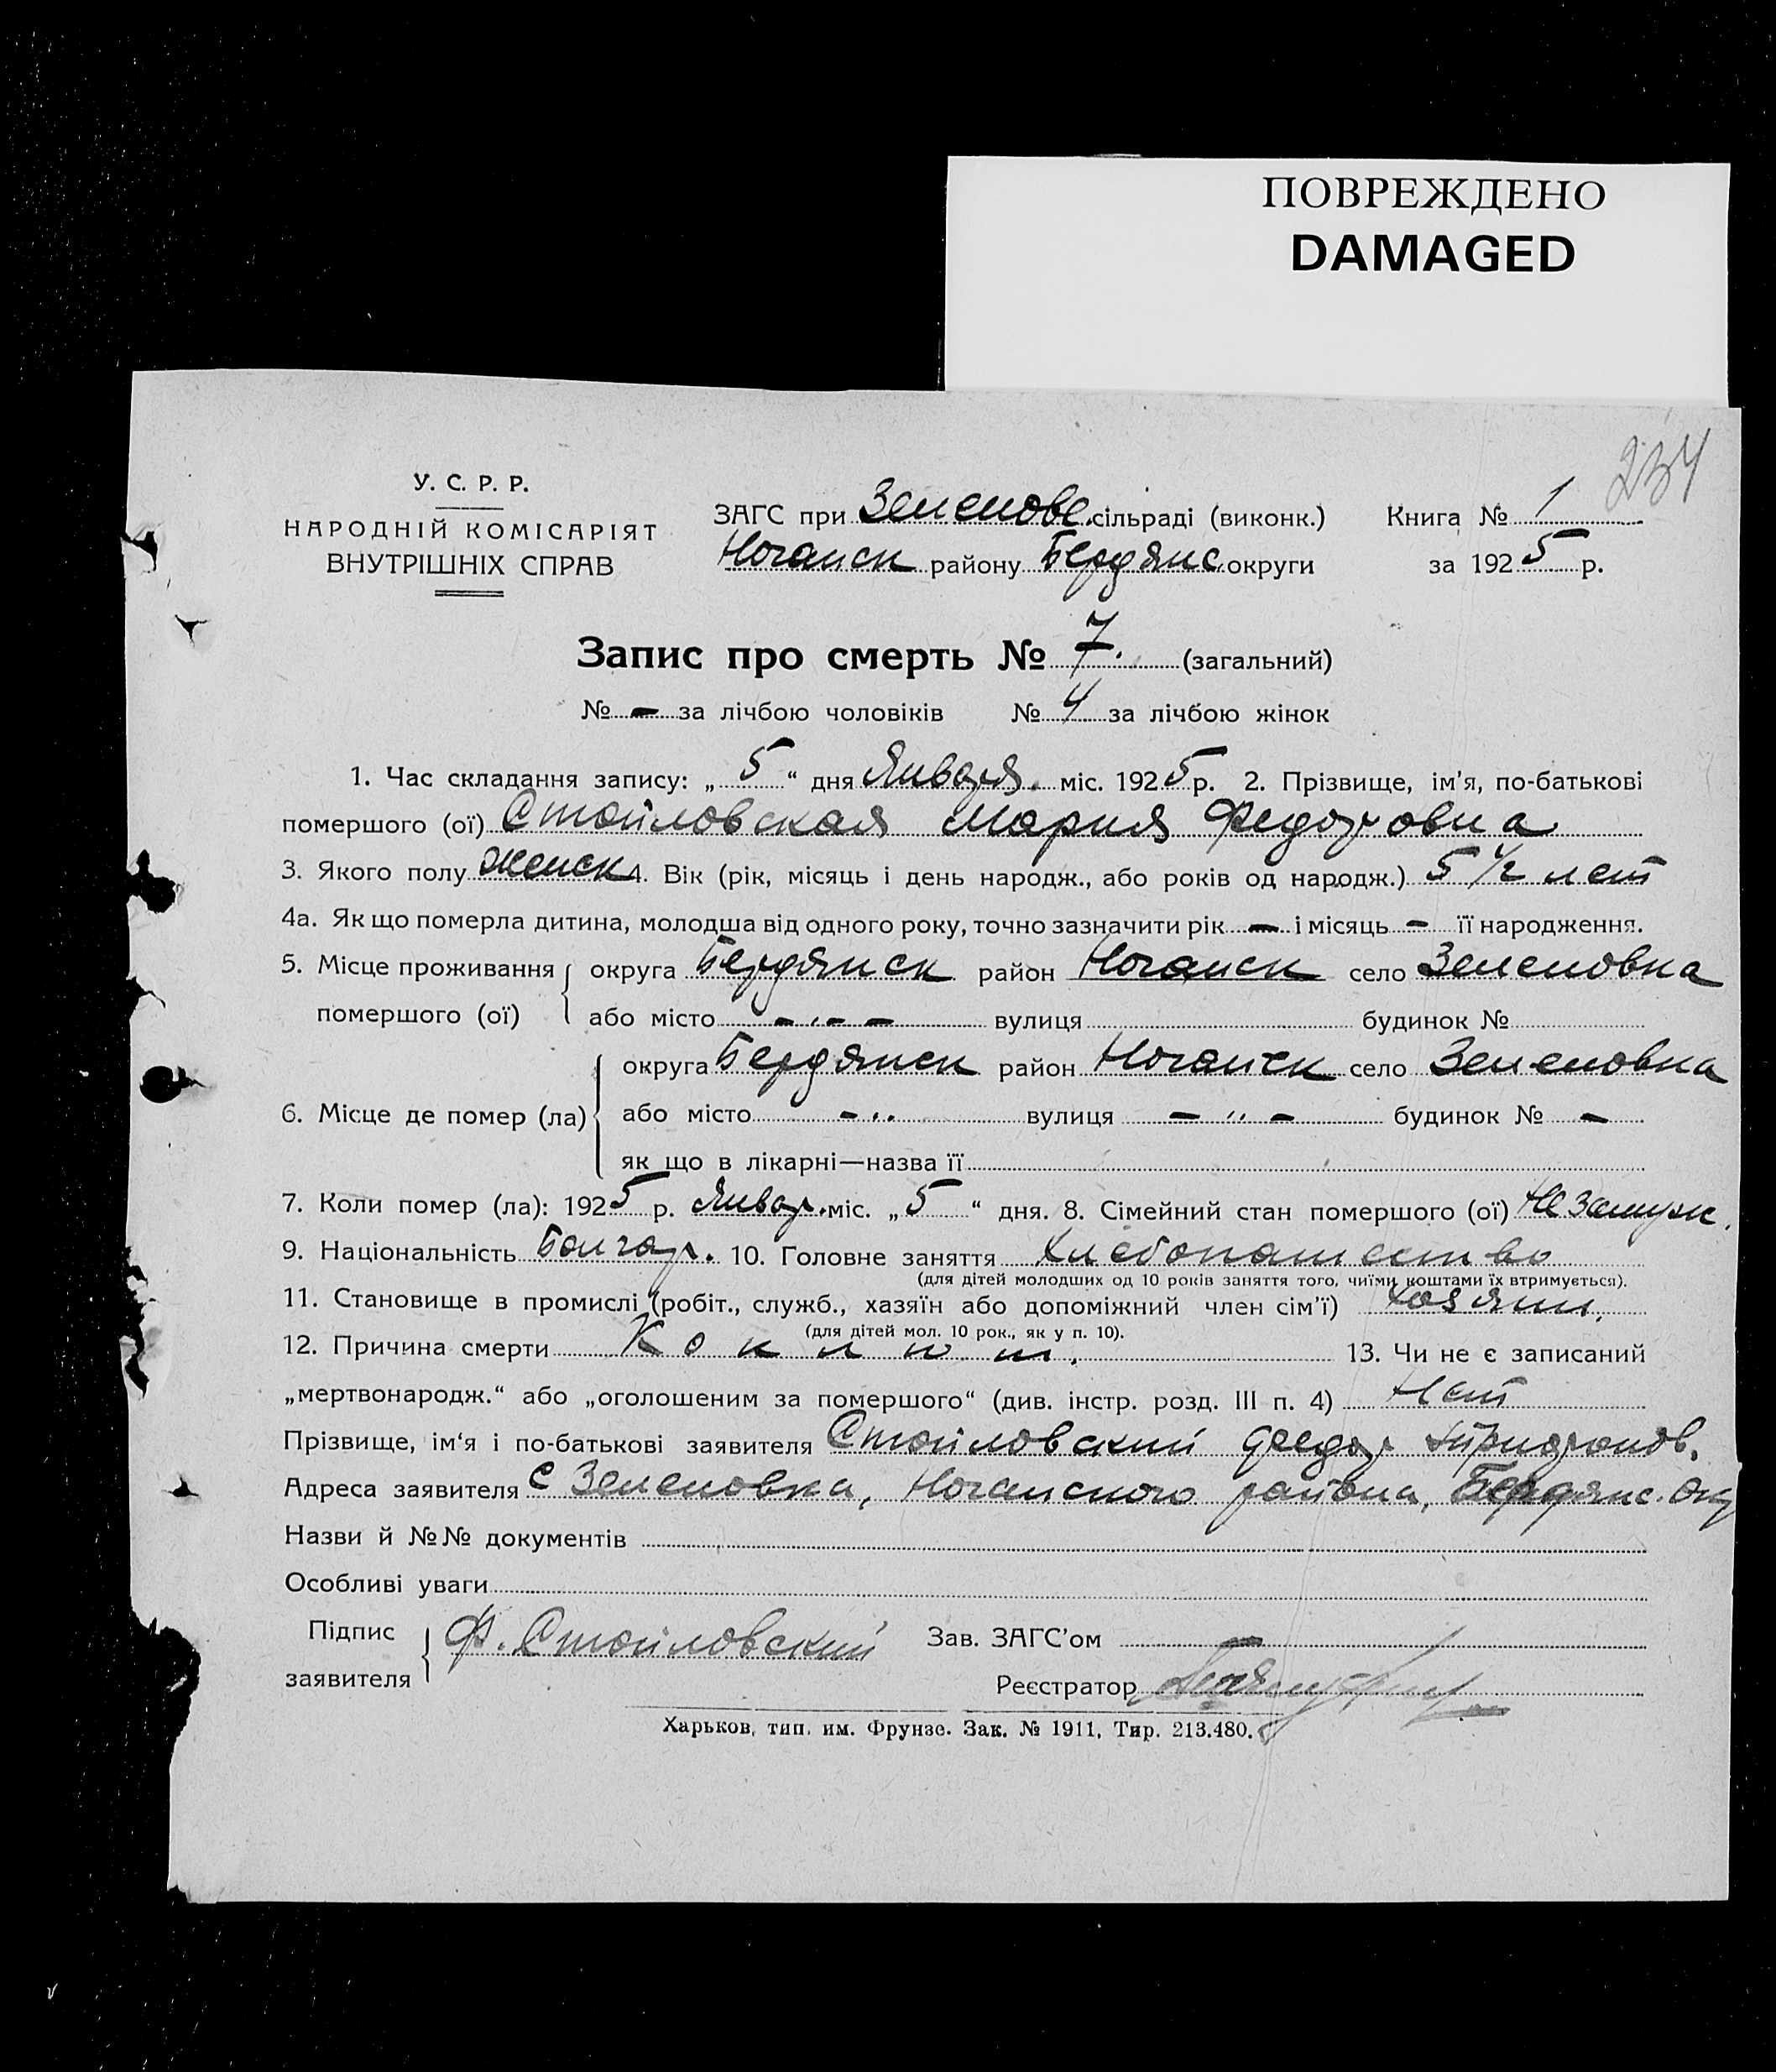 ПОВРЕЖДЕНО
DAMAGED
234
У. С. Р. Р.
НАРОДНІЙ КОМІСАРІЯТ
ВНУТРІШНІХ СПРАВ
ЗАГС при Зеленове. сільраді (виконк.) Книга № 1
Ногайск району Бердянс. округи за 1925 р.
Запис про смерть № 7. (загальний)
№ – за лічбою чоловіків № 4 за лічбою жінок
1. Час складання запису: „5“ дня Января. міс. 1925 р. 2. Прізвище, ім'я, по-батькові
помершого (ої) Стойловская Мария Федоровна
3. Якого полу женск 4. Вік (рік, місяць і день народж., або років од народж.) 5 1/2 лет
4а. Як що померла дитина, молодша від одного року, точно зазначити рік – і місяць – її народження.
5. Місце проживання помершого (ої) округа Бердянск район Ногайск село Зеленовка
або місто – „ – – вулиця будинок №
6. Місце де помер (ла) округа Бердянск район Ногайск село Зеленовка
або місто – „ вулиця – „ – будинок № –
як що в лікарні—назва її
7. Коли помер (ла): 1925 р. Январ. міс. „5“ дня. 8. Сімейний стан помершого (ої) Незамуж.
9. Національність Болгар. 10. Головне заняття Хлебопашество
(для дітей молодших од 10 років заняття того, чиїми коштами їх втримується).
11. Становище в промислі (робіт., служб., хазяїн або допоміжний член сім'ї) Хозяин.
(для дітей мол. 10 рок., як у п. 10).
12. Причина смерти Коклюш. 13. Чи не є записаний
„мертвонародж.“ або „оголошеним за помершого“ (див. інстр. розд. III п. 4) Нет
Прізвище, ім'я і по-батькові заявителя Стойловский Федор
Адреса заявителя С Зеленовка, Ногайского района, Бердянс. Окр
Назви й №№ документів
Особливі уваги
Підпис заявителя Ф. Стойловский Зав. ЗАГС'ом
Реєстратор
Харьков, тип. им. Фрунзе. Зак. № 1911, Тир. 213.480.